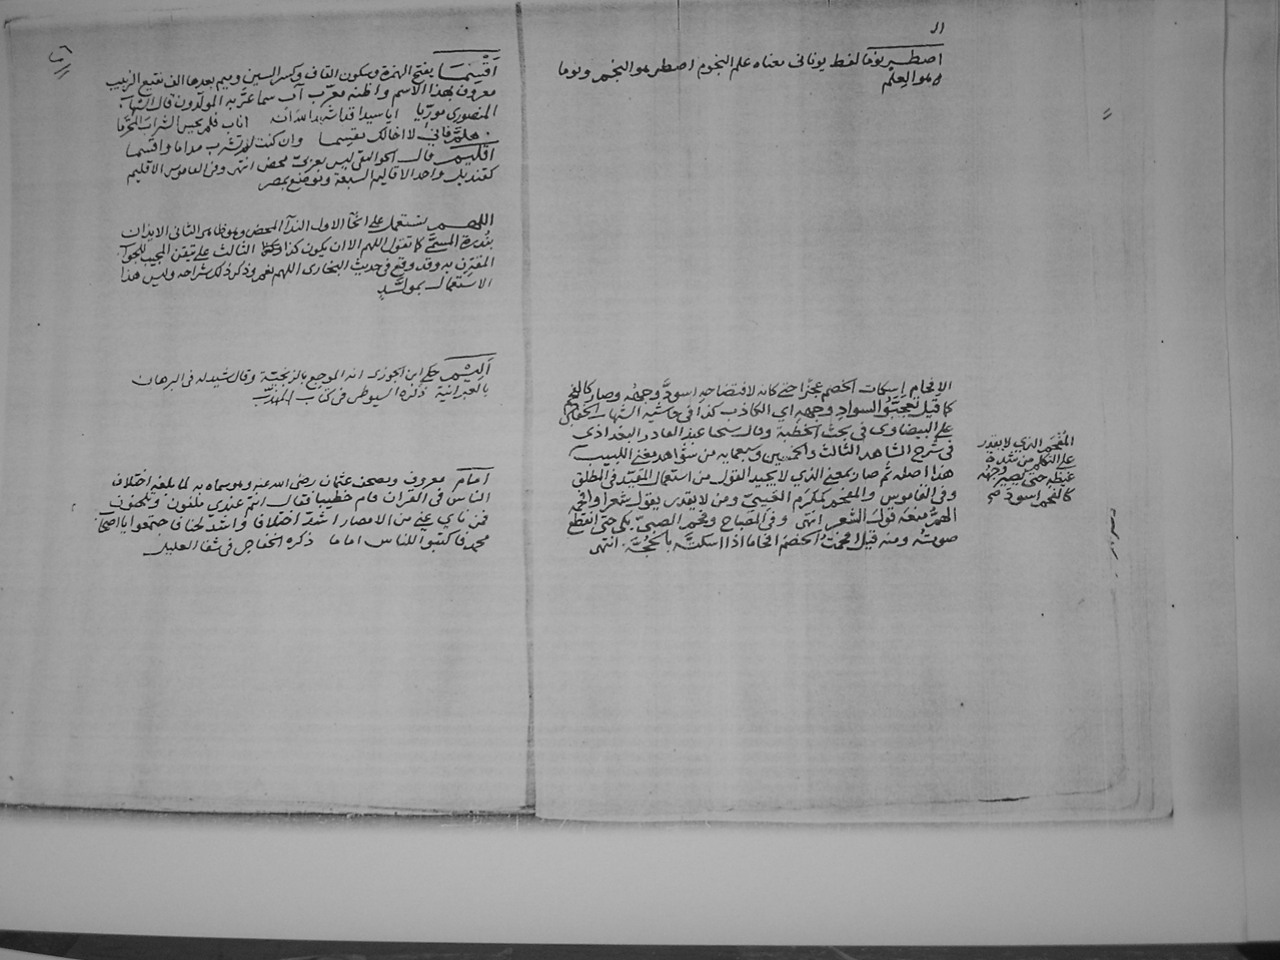 اصطرنوما لفظ يوناني معناه علم النجوم اصطر هو النجم ونوما
هو العلم
الإفحام إسكات الخصم عجزا حتى كانه لافتضاحه اسودّ وجهه وصار كالفحم
كما قيل السواد وجهه اي الكاذب كذا في حاشية الشهاب الخفاجي
على البيضاوي في بحث الخطبة وقال شيخنا عبد القادر البغدادي
في شرح الشاهد الثالث والخمسين وسبعمايه من شواهد مغني اللبيب
هذا اصله ثم صار بمعنى الذي لا يجيد القول من استعمال المقيد في المطلق
وفي القاموس والمفحم كمكرم العيي ومن لا يقدر يقول شعرا وافحمه
الهمّ منعه قول الشعر انتهى وفي المصباح وفحم الصبيّ بكى حتى انقطع
صوته ومنه قيل افحمت الخصم افحاما اذا اسكتّه بالحجّة انتهى
المفحم الذي لا يقدر
على التكلم من شدة
غيظه حتى يصير وجهه
كالفحم اسود
اقسما بفتح الهمزة وسكون القاف وكسر السين وميم بعدها الف نقيع الزبيب
معروف بهذا الاسم واظنه معرّب آب سما عرّبه المولّدون قال الشهاب
المنصوري مورّيا ايا سيدا قد اشهد الله انه اناب فلم يحس الشراب المحرّما
هلمّ فاني لا اخالك مقسما وان كنت لم تشرب مداما واقسما
اقليم قال الجواليقي ليس بعربي محض انتهى وفي القاموس الاقليم
كقنديل واحد الاقاليم السبعة وموضع بمصر
اللهم يستعمل على انحا الاول الندآ المحض وهو ظاهر الثاني الايذان
بندرة المستثنى كما تقول اللهم الا ان يكون كذا الثالث على تيقن المجيب للجواب
المقترن به وقد وقع في حديث البخاري اللهم نعم وذكر ذلك شراحه وليس هذا
الاستعمال بمولّد
أليم حكى ابن الجوزي انه الموجع بالزنجيّة وقال شيذله في البرهان
بالعبرانية ذكره السيوطي في كتاب المهذب
امام معروف ومصحف عثمان رضي الله عنه وهو سماه به لما بلغه اختلاف
الناس في القران قام خطيبا فقال انتم عندي تختلفون وتلحنون
فمن ناي عني من الامصار اشد اختلافا واشد لحنا فاجتمعوا يا اصحاب
محمد فاكتبوا للناس اماما ذكره الخفاجي في شفا العليل